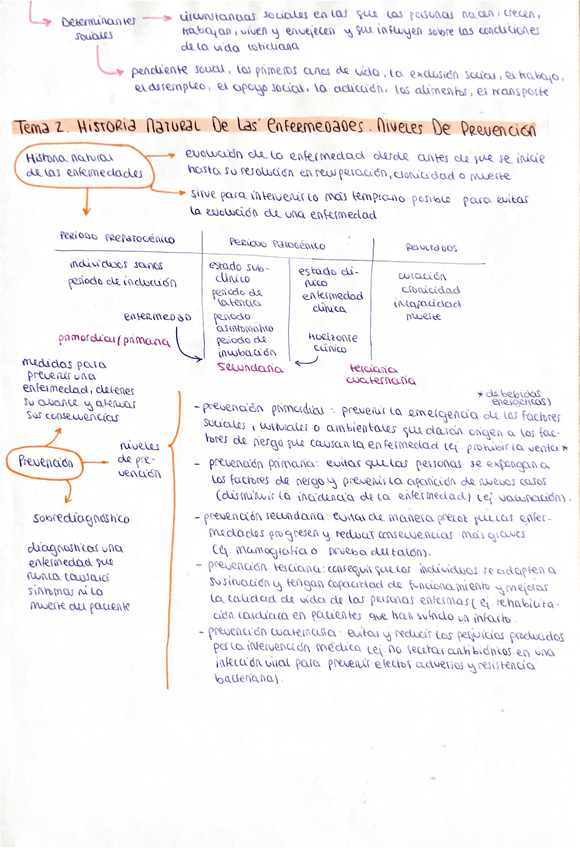 Determinantes sociales → circunstancias sociales en las que las personas nacen, crecen,
trabajan, viven y envejecen y que influyen sobre las condiciones
de la vida cotidiana
pendiente social, los primeros años de vida, la exclusión social, el trabajo,
el desempleo, el apoyo social, la adicción, los alimentos, el transporte
Tema 2. Historia Natural De Las Enfermedades. Niveles De Prevención
Historia natural
de las enfermedades
evolución de la enfermedad desde antes de que se inicie
hasta su resolución en recuperación, cronicidad o muerte
sirve para intervenir lo más temprano posible para evitar
la evolución de una enfermedad
PERIODO PREPATOGÉNICO
PERIODO PATOGÉNICO
RESULTADOS
individuos sanos
periodo de inducción
ENFERMEDAD
primordial/primaria
estado sub-
clínico
periodo de
latencia
periodo
asintomático
periodo de
incubación
secundaria
estado clí-
nico
enfermedad
clínica
horizonte
clínico
terciaria
cuaternaria
curación
cronicidad
incapacidad
muerte
medidas para
prevenir una
enfermedad, detener
su avance y atenuar
sus consecuencias
Prevención
niveles
de pre-
vención
sobrediagnóstico
diagnosticar una
enfermedad que
nunca causará
síntomas ni la
muerte del paciente
* de bebidas
energéticas)
- prevención primordial: prevenir la emergencia de los factores
sociales, culturales o ambientales que darían origen a los fac-
tores de riesgo que causan la enfermedad (ej. prohibir la venta *
- prevención primaria: evitar que las personas se expongan a
los factores de riesgo y prevenir la aparición de nuevos casos
(disminuir la incidencia de la enfermedad) (ej. vacunación).
- prevención secundaria: evitar de manera precoz que las enfer-
medades progresen y reducir consecuencias más graves
(ej. mamografía o prueba del talón).
- prevención terciaria: conseguir que los individuos se adapten a
su situación y tengan capacidad de funcionamiento y mejorar
la calidad de vida de las personas enfermas (ej. rehabilita-
ción cardíaca en pacientes que han sufrido un infarto.
- prevención cuaternaria: evitar y reducir los perjuicios producidos
por la intervención médica (ej. no recetar antibióticos en una
infección viral para prevenir efectos adversos y resistencia
bacteriana).